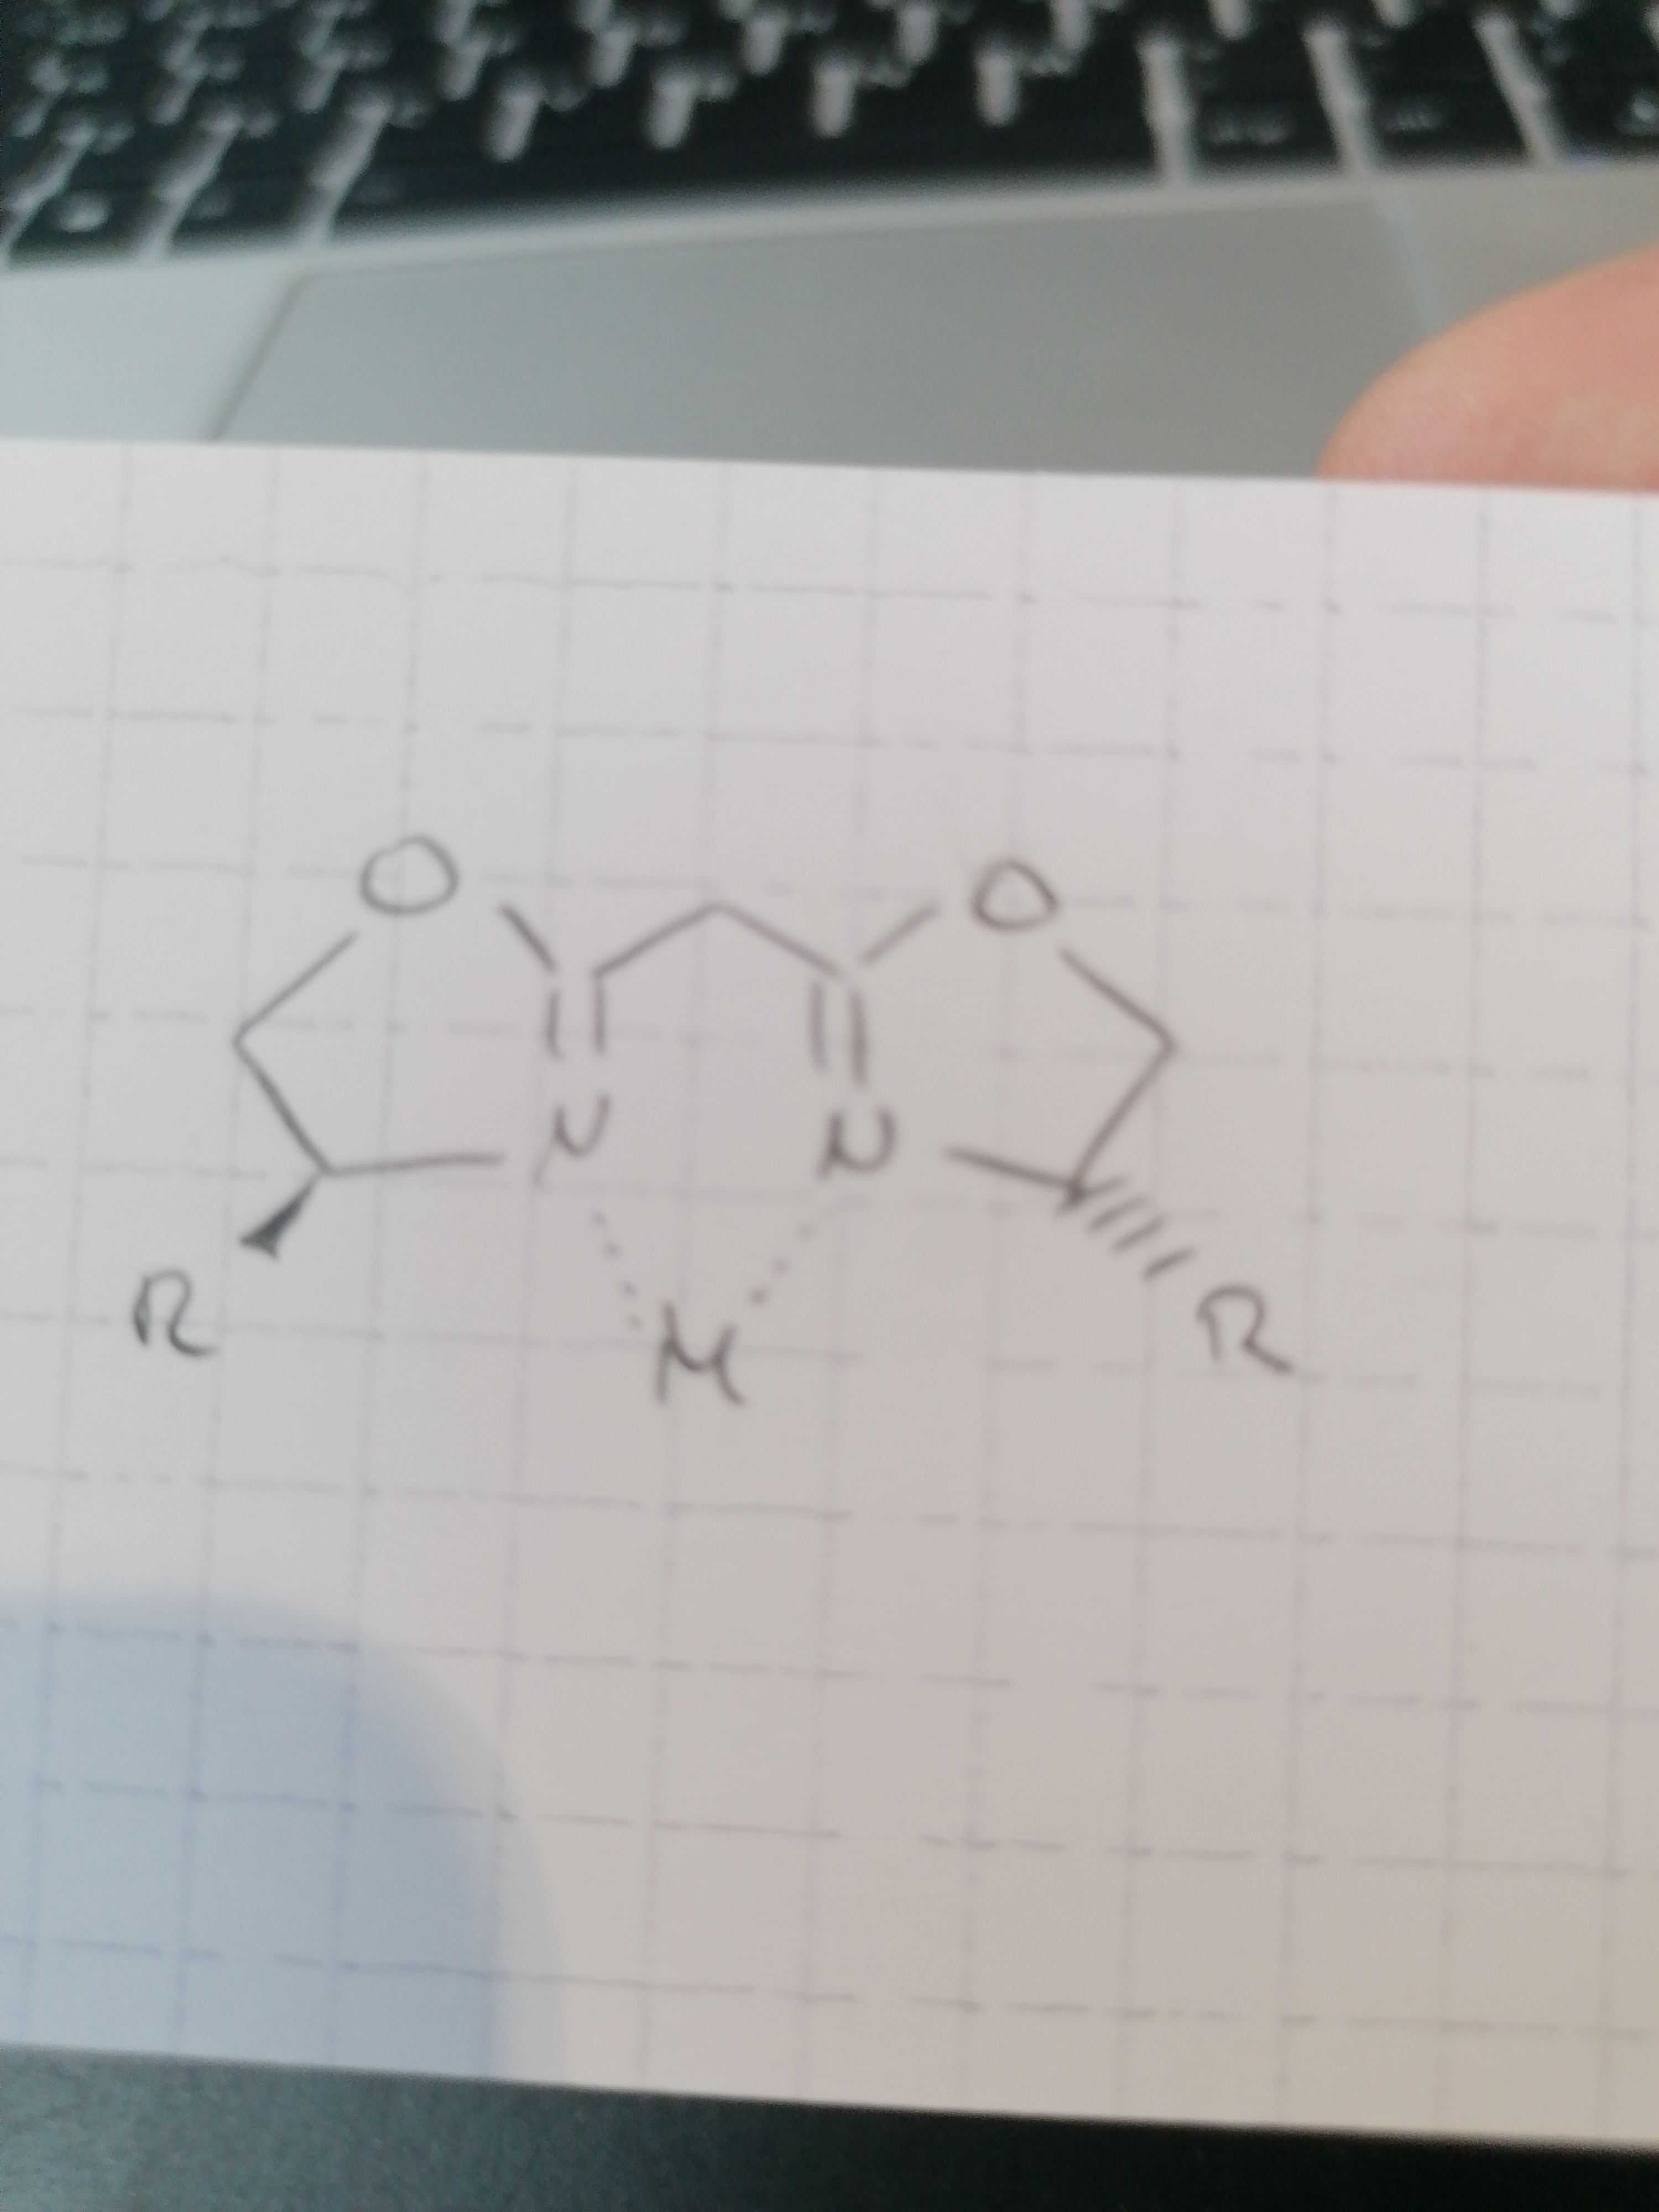 O O
N N
R M R